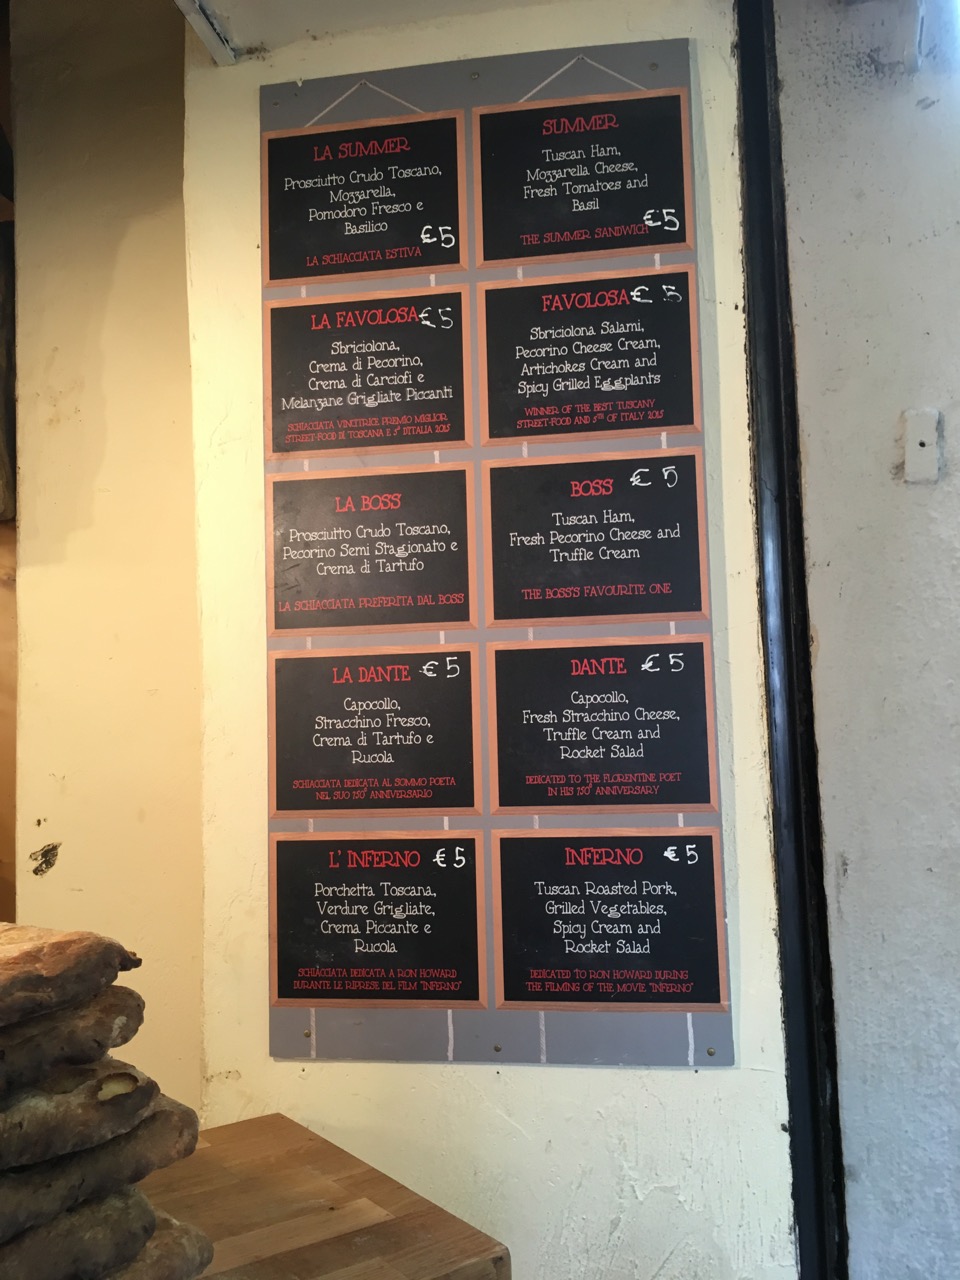 LA SUMMER
Prosciutto Crudo Toscano,
Mozzarella,
Pomodoro Fresco e
Basilico
€5
LA SCHIACCIATA ESTIVA
SUMMER
Tuscan Ham,
Mozzarella Cheese,
Fresh Tomatoes and
Basil
€5
THE SUMMER SANDWICH
LA FAVOLOSA €5
Sbriciolona,
Crema di Pecorino,
Crema di Carciofi e
Melanzane Grigliate Piccanti
SCHIACCIATA VINCITRICE PREMIO MIGLIOR
STREET-FOOD DI TOSCANA E 5° D'ITALIA 2015
FAVOLOSA € 5
Sbriciolona Salami,
Pecorino Cheese Cream,
Artichokes Cream and
Spicy Grilled Eggplants
WINNER OF THE BEST TUSCANY
STREET-FOOD AND 5TH OF ITALY 2015
LA BOSS
Prosciutto Crudo Toscano,
Pecorino Semi Stagionato e
Crema di Tartufo
LA SCHIACCIATA PREFERITA DAL BOSS
BOSS € 5
Tuscan Ham,
Fresh Pecorino Cheese and
Truffle Cream
THE BOSS'S FAVOURITE ONE
LA DANTE € 5
Capocollo,
Stracchino Fresco,
Crema di Tartufo e
Rucola
SCHIACCIATA DEDICATA AL SOMMO POETA
NEL SUO 750° ANNIVERSARIO
DANTE € 5
Capocollo,
Fresh Stracchino Cheese,
Truffle Cream and
Rocket Salad
DEDICATED TO THE FLORENTINE POET
IN HIS 750° ANNIVERSARY
L' INFERNO € 5
Porchetta Toscana,
Verdure Grigliate,
Crema Piccante e
Rucola
SCHIACCIATA DEDICATA A RON HOWARD
DURANTE LE RIPRESE DEL FILM "INFERNO"
INFERNO € 5
Tuscan Roasted Pork,
Grilled Vegetables,
Spicy Cream and
Rocket Salad
DEDICATED TO RON HOWARD DURING
THE FILMING OF THE MOVIE "INFERNO"